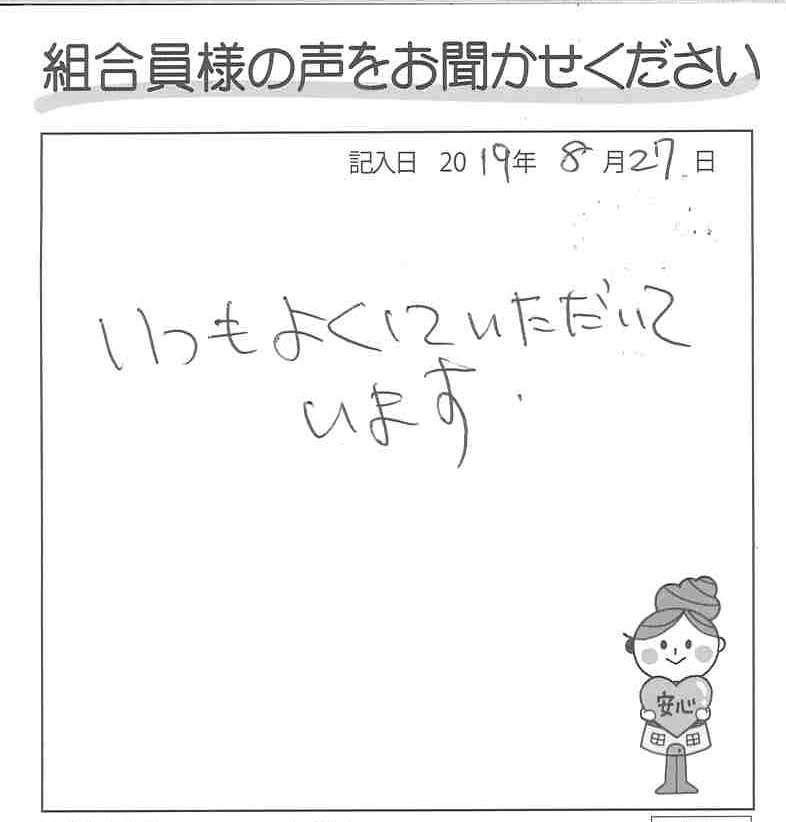 組合員様の声をお聞かせください
記入日 2019年 8月27日
いつもよくしていただいて
います.
安心